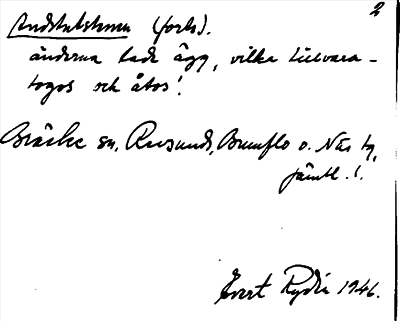 2
Andstulstumma (forts).
änderna lade ägg, vilka tillvara-
togos och åtos!
Bräcke sn, Revsunds, Brunflo o. Näs tg,
jämtl. l.
Evert Rydin 1946.